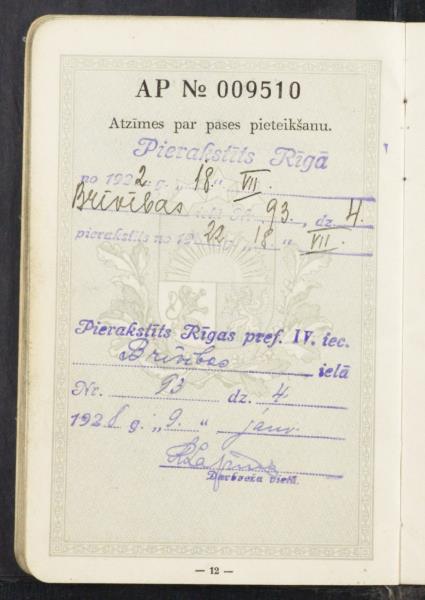 AP № 009510
Atzīmes par pases pieteikšanu.
Pierakstīts Rīgā
no 1922 g. „18“ VII.
Brīvības ielā № 93, dz. 4.
pierakstīts no 1922 „18“ VII.
Pierakstīts Rīgas pref. IV. iec.
Brīvības ielā
Nr. 93 dz. 4
1928 g. „9.“ janv.
Darbveža vietā.
— 12 —